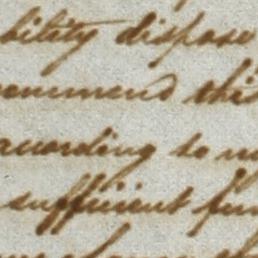 bility dispose
commend this
according to
sufficient fun